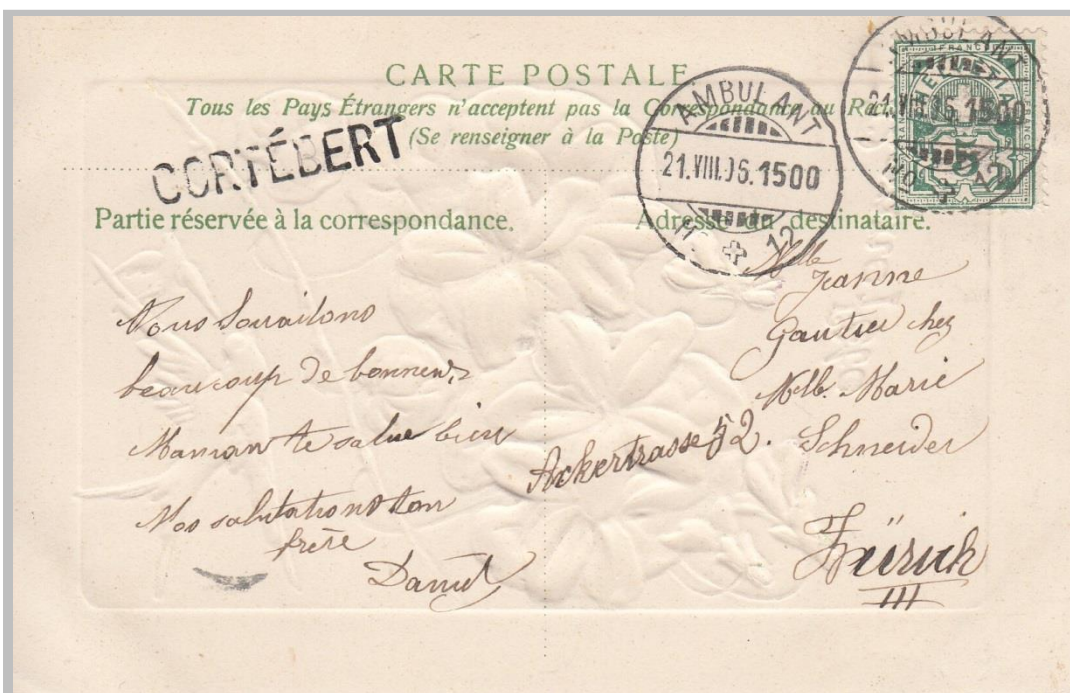 CARTE POSTALE
Tous les Pays Étrangers n'acceptent pas la Correspondance au
(Se renseigner à la Poste)
CORTÉBERT
AMBULANT
21.VIII.06.1500
No 12
AMBULANT
21.VIII.06.1500
No 12
FRANCO
HELVETIA
5
Partie réservée à la correspondance.
Adresse du destinataire.
Vous Souaitons
beaucoup de bonneur
Maman te salue bien
Nos salutations ton
frère
Daniel
Mlle
Jeanne
Gautier chez
Mlle. Marie
Schneider
Ackertrasse 52.
Zürich
III